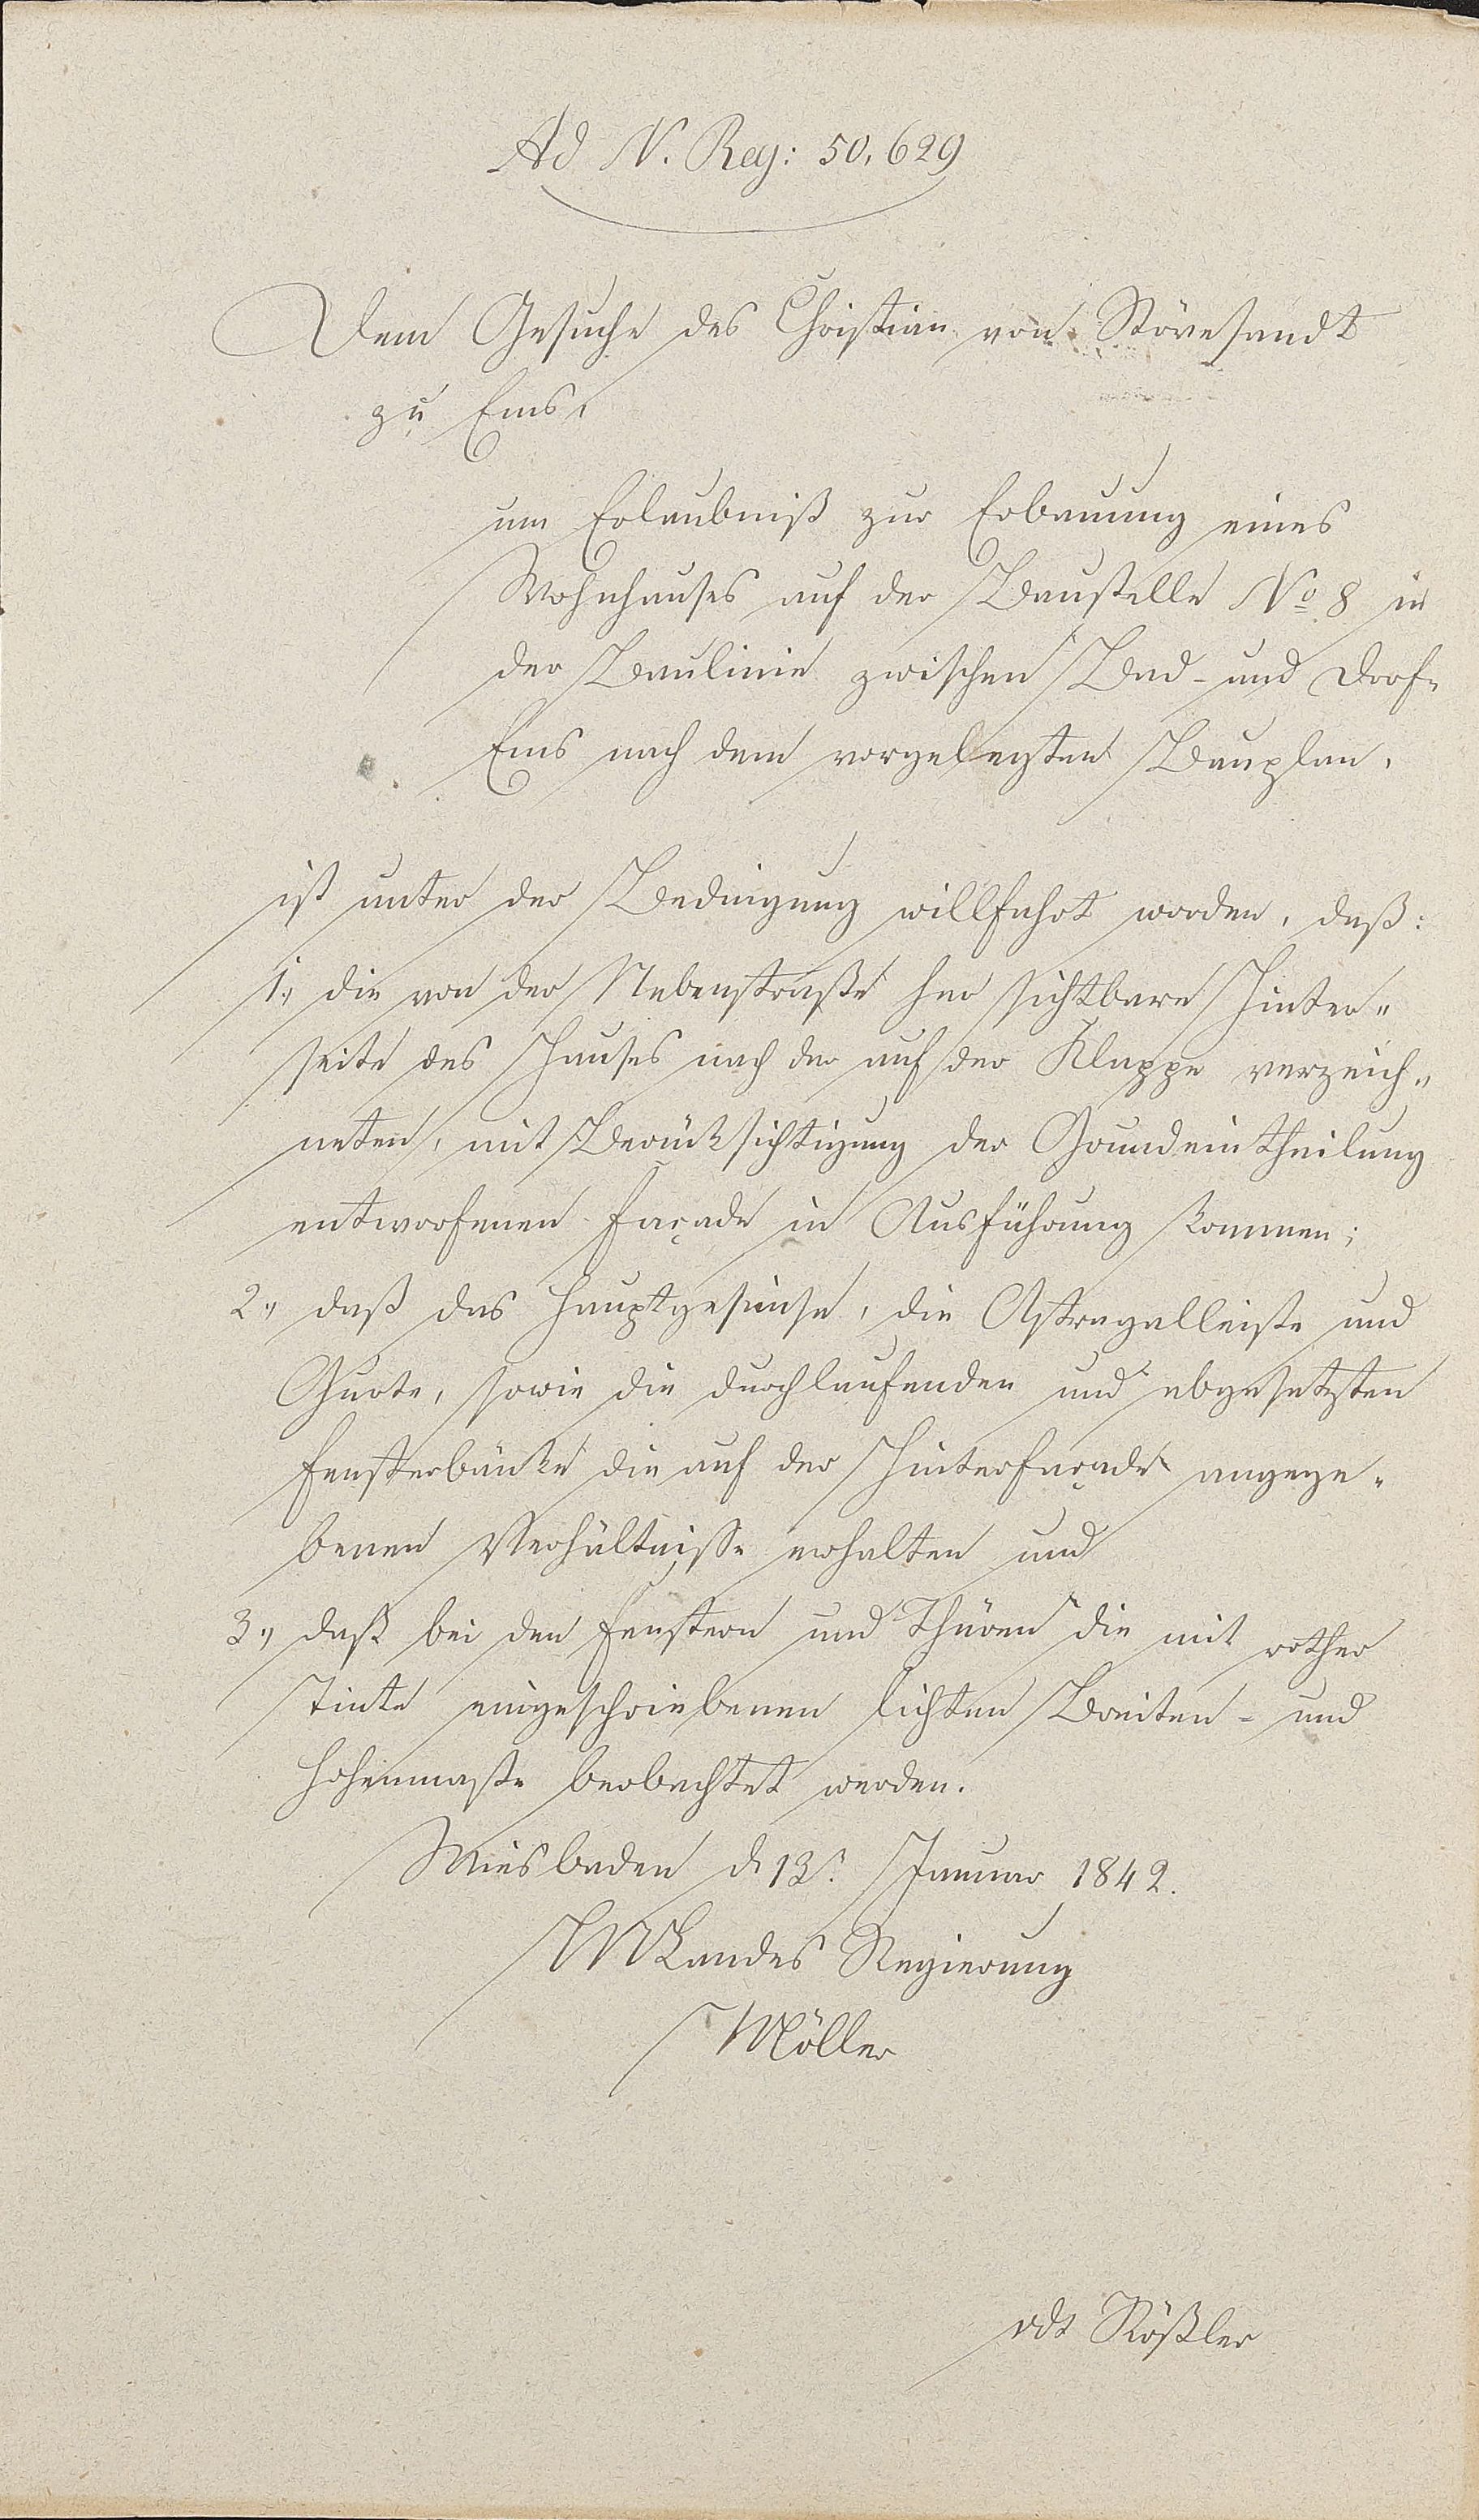 Ad N. Reg: 50,629
Dem Gesuche des Christian von Störesandt
zu Ems,
um Erlaubniß zur Erbauung eines
Wohnhauses auf der Baustelle No 8 in
der Baulinie zwischen Bad- und Dorf-
Ems nach dem vorgelegten Bauplan,
ist unter der Bedingung willfahrt worden, daß:
1., die von der Nebenstraße her sichtbare Hinter-
seite des Hauses nach der auf der Klappe verzeich-
neten, mit Berücksichtigung der Grundeintheilung
entworfenen Façade in Ausführung kommen;
2., daß das Hauptgesimse, die Astragalleiste und
Gurte, sowie die durchlaufenden und abgesetzten
Fensterbänke die auf der Hinterfaçade angege-
benen Verhältnisse erhalten und
3., daß bei den Fenstern und Thüren die mit rother
Tinte eingeschriebenen lichten Breiten- und
Höhenmaße beobachtet werden.
Wiesbaden d 13t. Januar 1842.
HN Landes Regierung
Möller
vdt Rößler